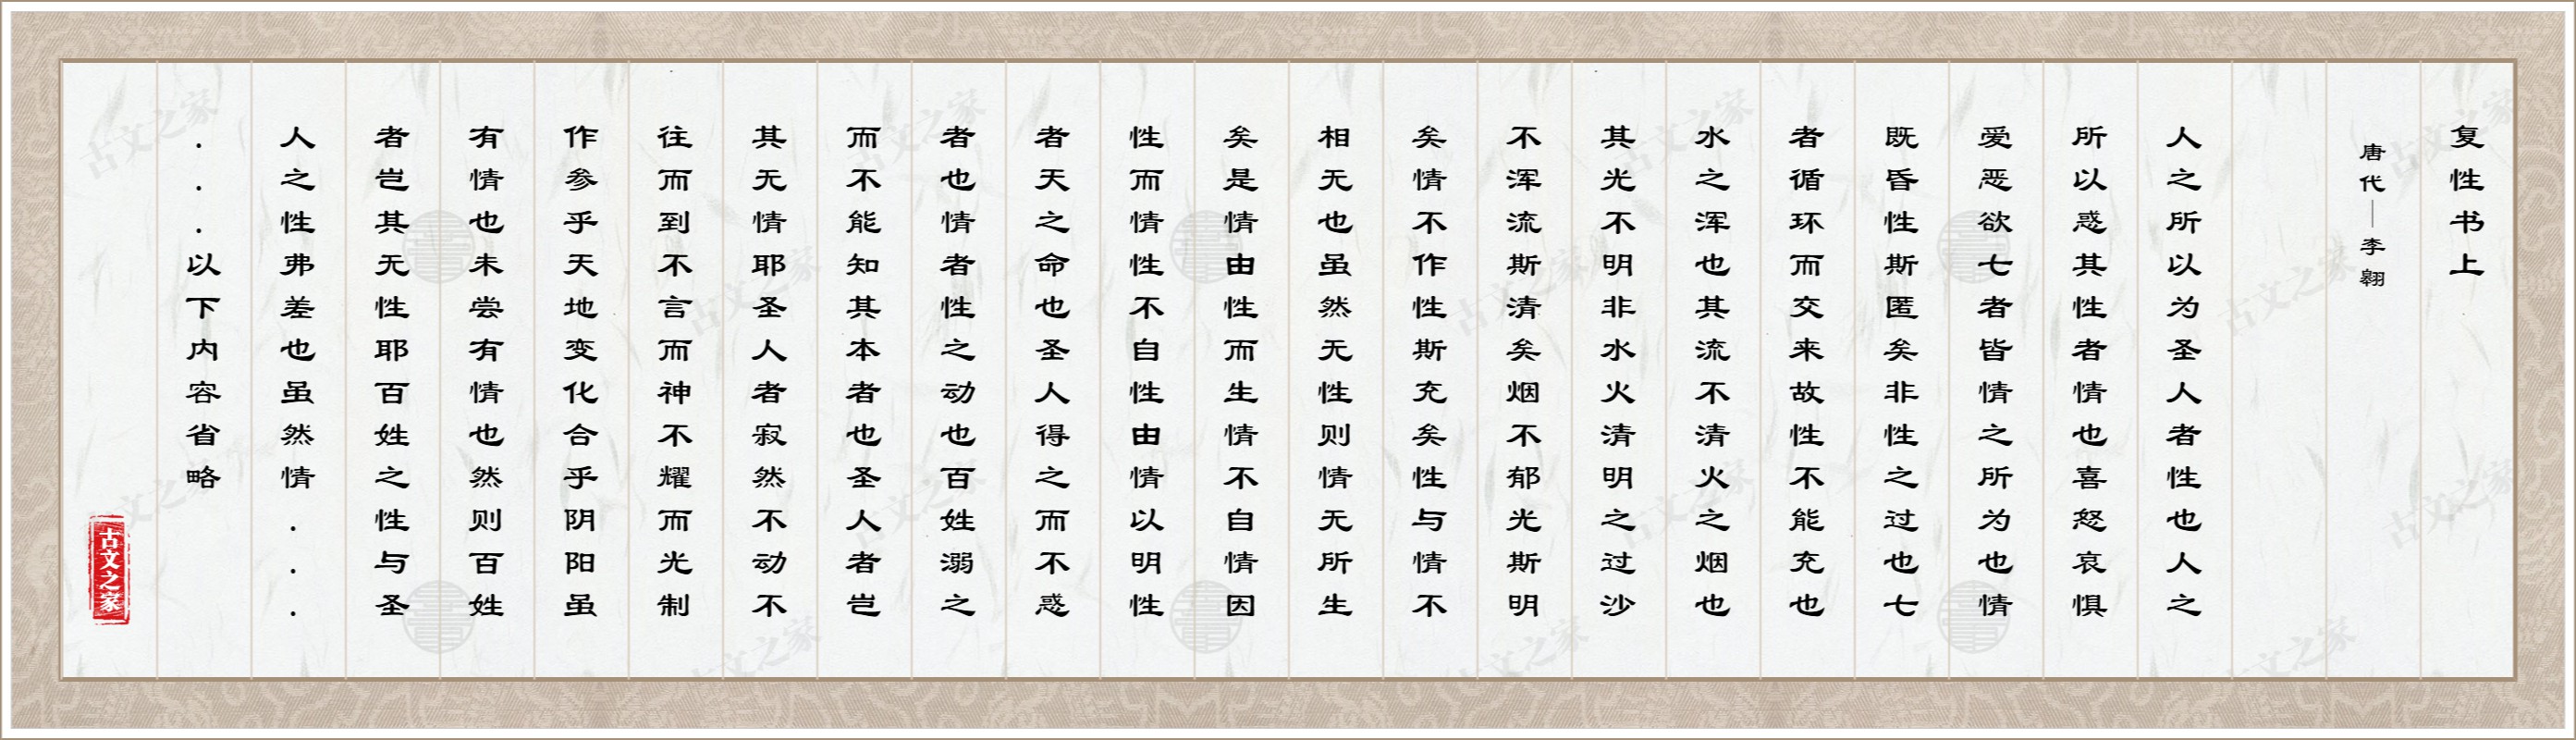 复性书上
唐代——李翱
人之所以为圣人者性也人之
所以惑其性者情也喜怒哀惧
爱恶欲七者皆情之所为也情
既昏性斯匿矣非性之过也七
者循环而交来故性不能充也
水之浑也其流不清火之烟也
其光不明非水火清明之过沙
不浑流斯清矣烟不郁光斯明
矣情不作性斯充矣性与情不
相无也虽然无性则情无所生
矣是情由性而生情不自情因
性而情性不自性由情以明性
者天之命也圣人得之而不惑
者也情者性之动也百姓溺之
而不能知其本者也圣人者岂
其无情耶圣人者寂然不动不
往而到不言而神不耀而光制
作参乎天地变化合乎阴阳虽
有情也未尝有情也然则百姓
者岂其无性耶百姓之性与圣
人之性弗差也虽然情...
...以下内容省略
古文之家